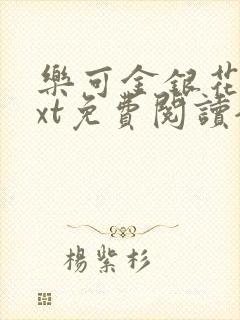 樂可金銀花
xt免費閱讀
楊紫杉